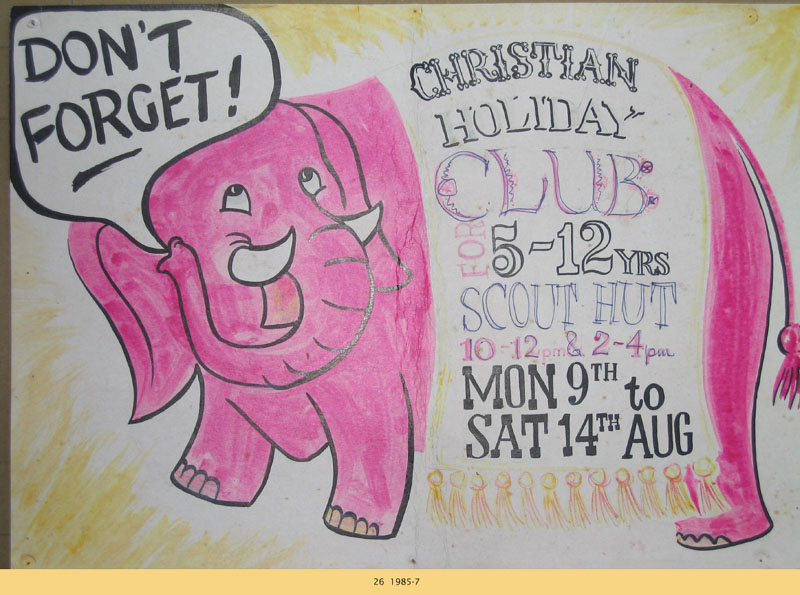 DON'T
FORGET!
CHRISTIAN
HOLIDAY
CLUB:
FOR
5-12 YRS
SCOUT HUT
10-12pm & 2-4pm
MON 9TH to
SAT 14TH AUG
26 1985-7